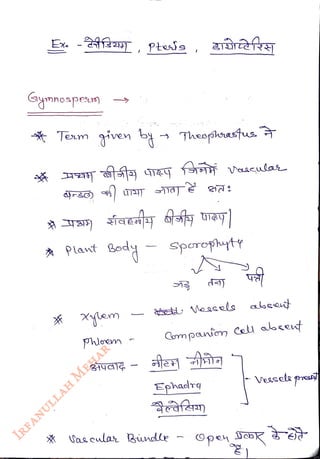 Ex. - टेरीडियम, Pteris, ड्रायोप्टेरिस
Gymnosperm →
* Term given by → Theophrastus ने
* प्रथम बीजीय पादप जिनमें vascular
बण्डल को पाया जाता है अतः
* प्रथम संवहनीय बीजीय पादप|
* Plant Body - Sporophyte
जड़ तना पत्ती
* Xylem - Vessels absent
Phloem - Companion Cell absent
अपवाद - नीटम नीमोन
Ephadra
वैल्वेसिया
- Vessels present
* Vascular Bundle - Open प्रकार के होते
है।
IRFANULLAH MEHAR